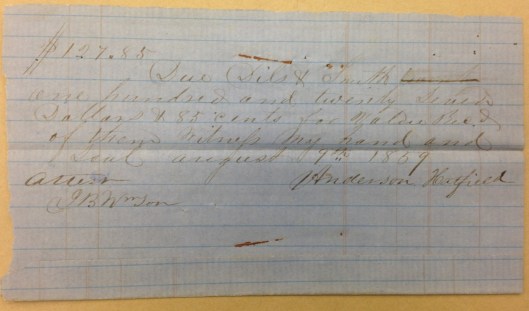 $127.85
Due Dils & Smith
one hundred and twenty seven
Dollars & 85 cents for value Recd
of them Witness my hand and
Seal august 7th 1859
attest Anderson Hatfield
J B Wmson